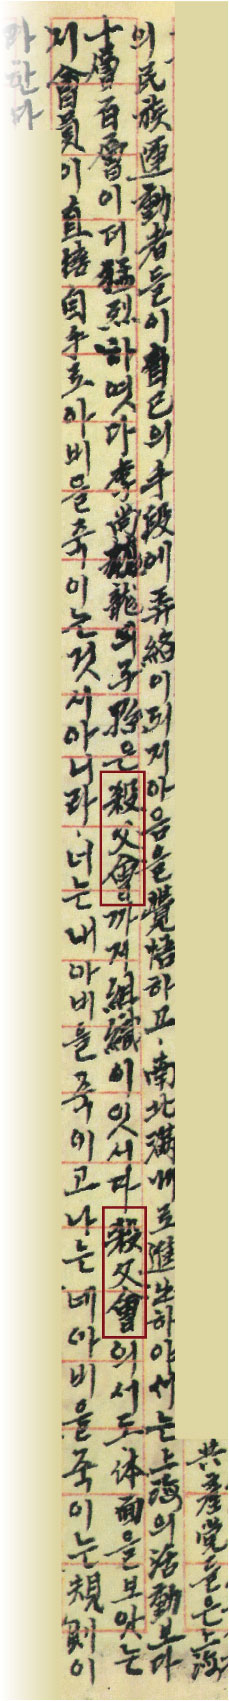 共産党들은上海
의民族運動者들이自己의手段에弄絡이되지아음을覺悟하고、南北滿洲로進出하야서는上海의活動보다
十層百層이더猛烈하엿다李尙龍의子孫은殺父會까지組織이잇서다殺父會의서도体面을보아는
지會員이直接自手로아비을죽이는것시아니라、너는내아비를죽이고나는네아비을죽이는規則이
라한다